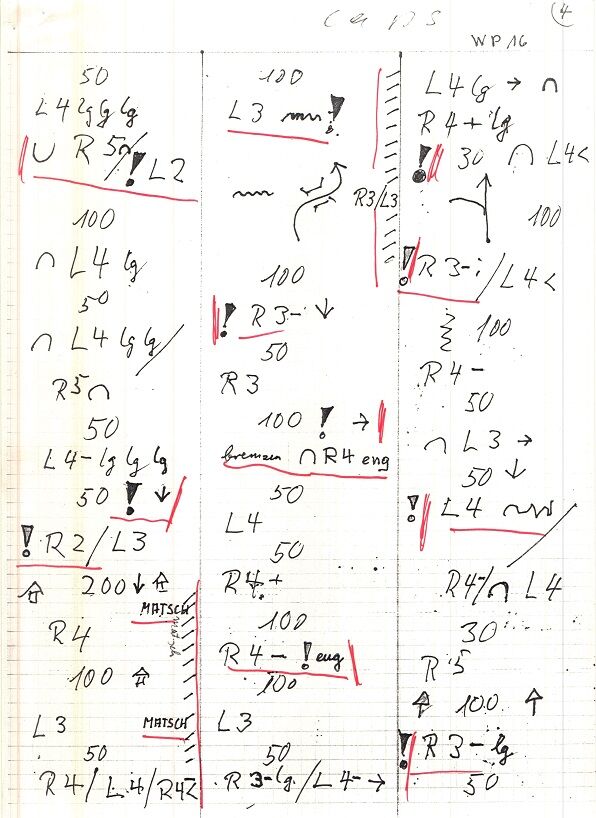 4
WP 16
50
L4 lg lg lg
∪ R5∩/! L2
100
∩ L4 lg
50
∩ L4 lg lg/
R5∩
50
L4- lg lg lg
50 ! ↓
! R2/L3
200 ↓
MATSCH
R4
100
L3
MATSCH
50
R4/L4/R4<
100
L3 !
R3/L3
100
! R3- ↓
50
R3
100 ! →
bremsen ∩ R4 eng
50
L4
50
R4+
100
R4- ! eng
100
L3
50
R3-lg/L4- →
L4 lg → ∩
R4+ lg
! 30 ∩ L4<
100
! R3-:/L4<
100
R4-
50
∩ L3 →
50 ↓
! L4
R4-/∩ L4
30
R5
100 ↑
! R3- lg
50